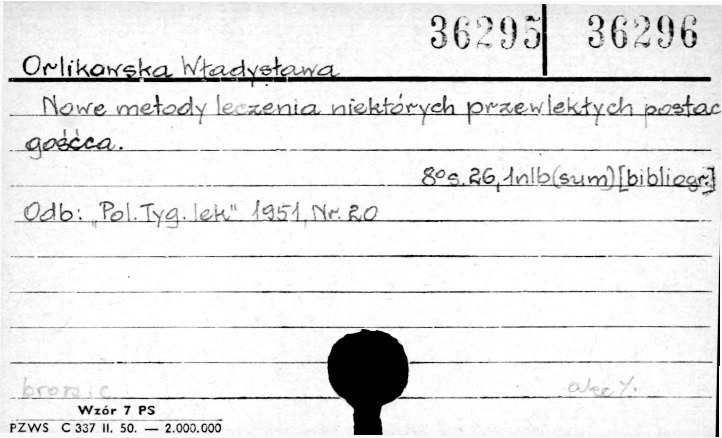 36295 36296
Orlikowska Władysława
Nowe metody leczenia niektórych przewlekłych postac
gośćca.
8° s. 26, 1nlb (sum) [bibliogr.]
Odb: „Pol. Tyg. lek" 1951, Nr. 20
Wzór 7 PS
PZWS C 337 II. 50. — 2.000.000